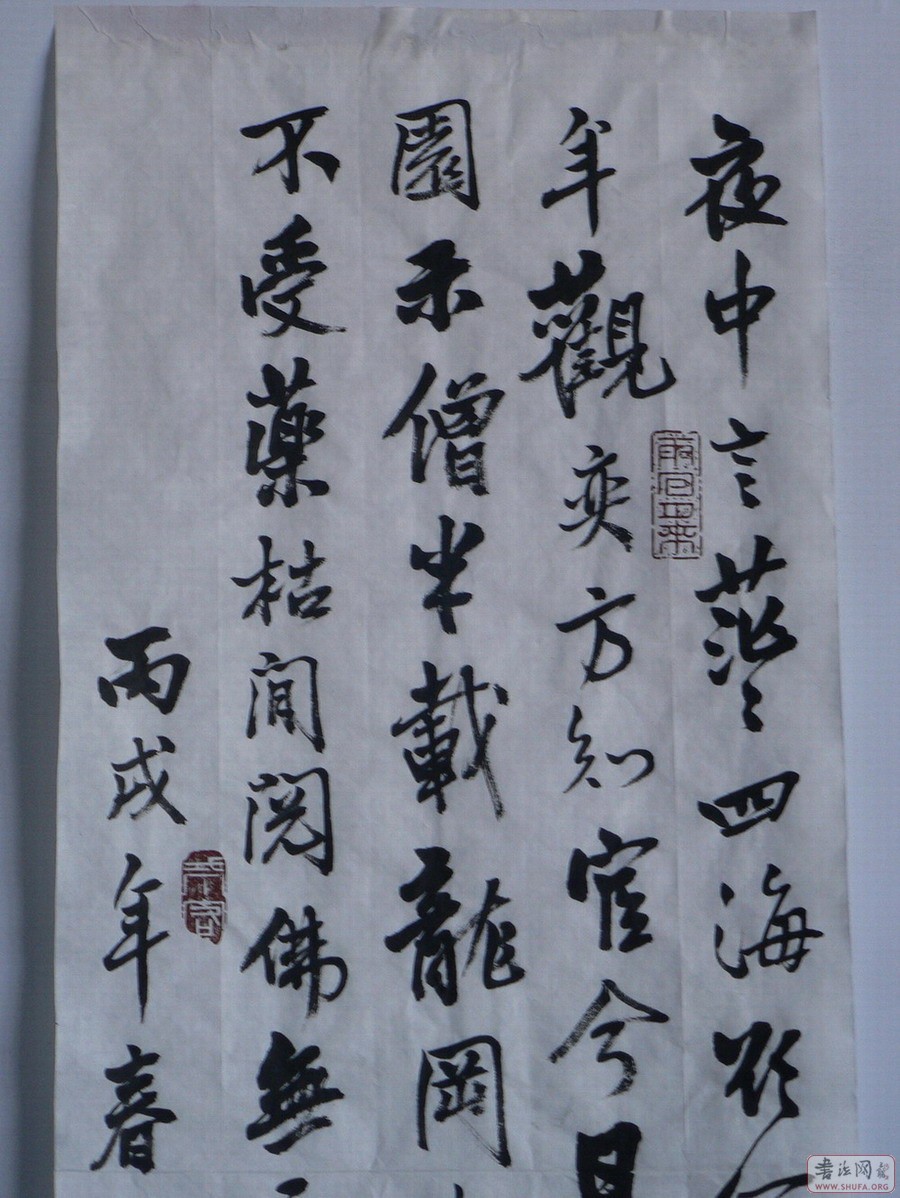 夜中言茫々四海
年觀奕方知官今日
園示僧半載龍岡
不受藥枯閒閱佛無
丙戌年春
書法网
WWW.SHUFA.ORG